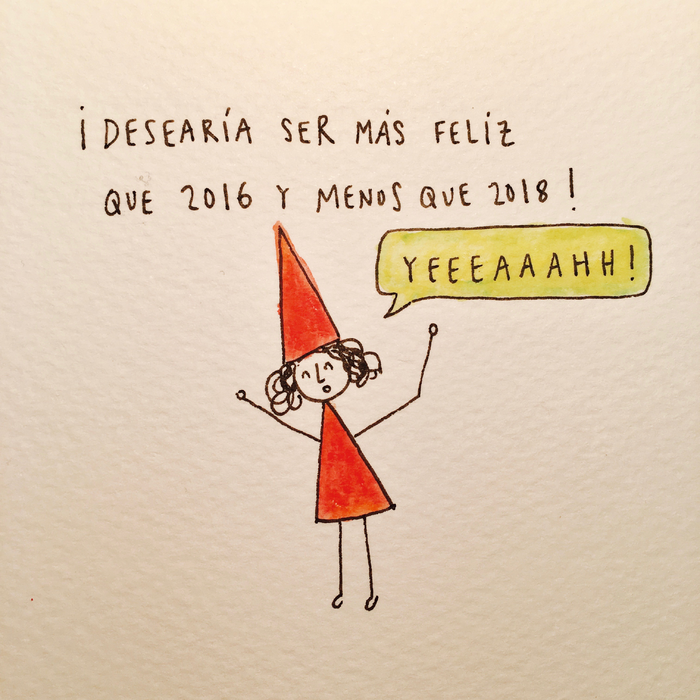 ¡DESEARÍA SER MÁS FELÍZ
QUE 2016 Y MENOS QUE 2018!
YEEEAAAHH!